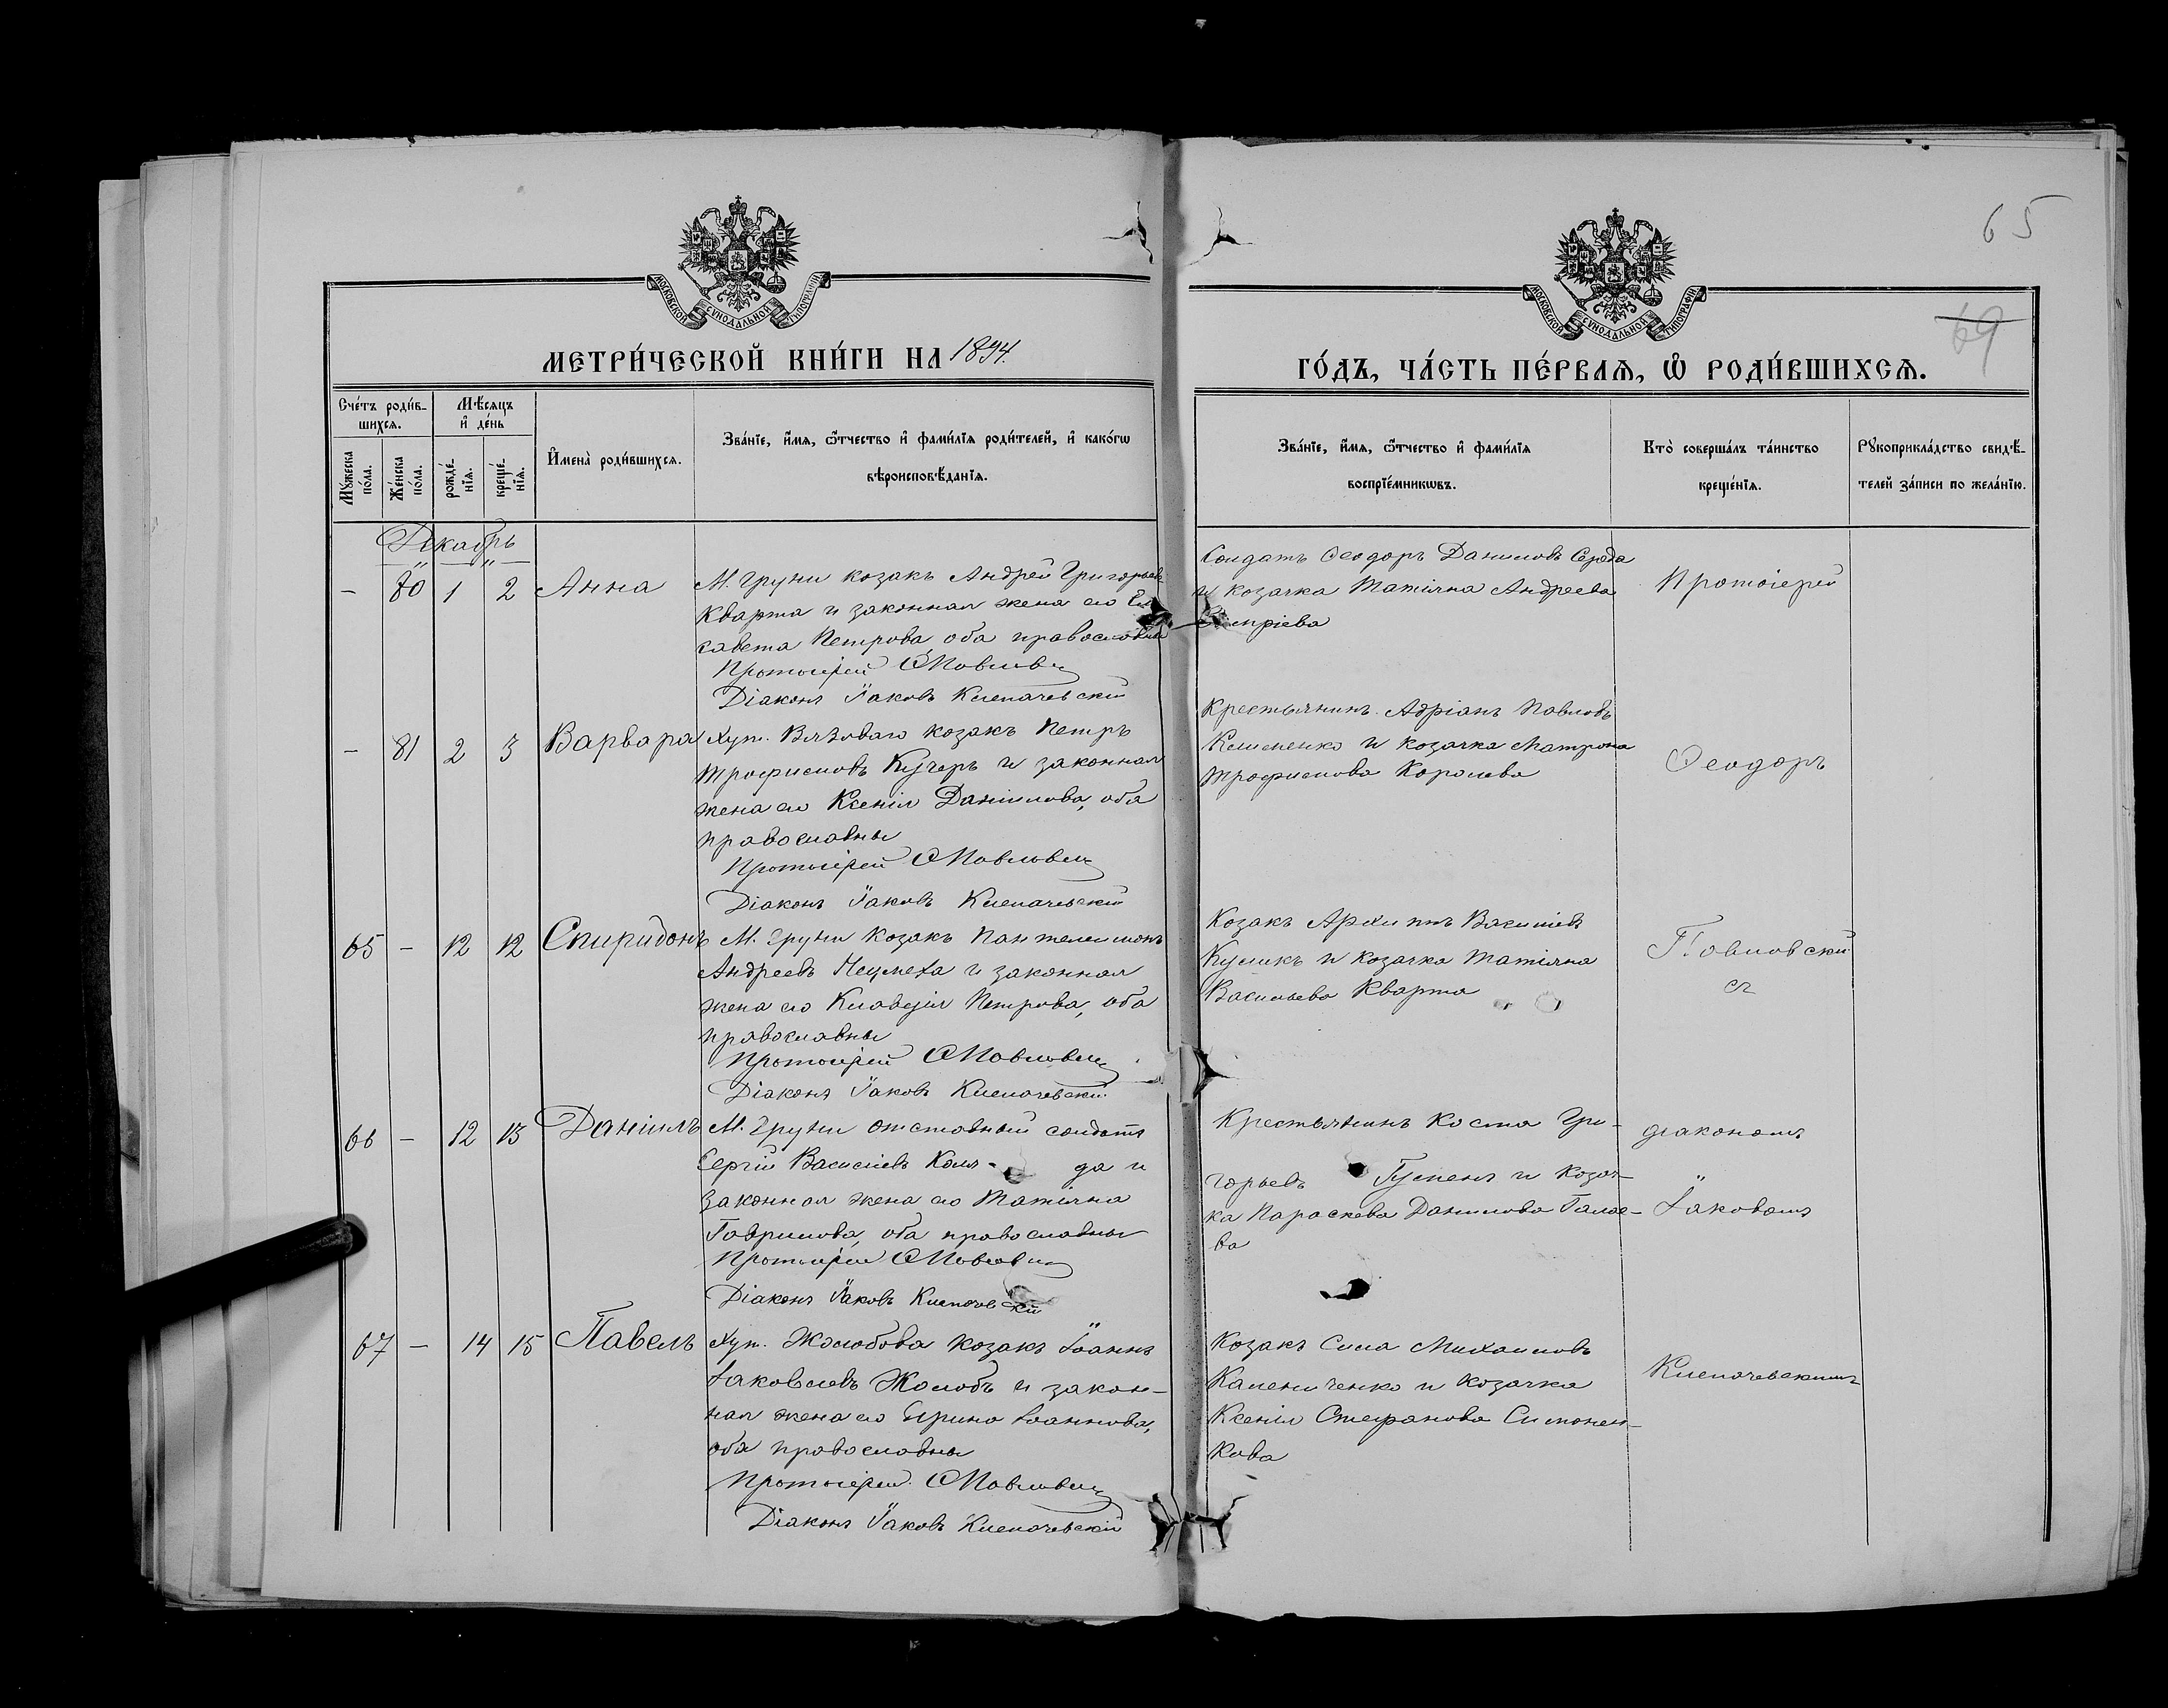 65
69
МОСКОВСКОЙ СУНОДАЛЬНОЙ ТИПОГРАФІИ
МОСКОВСКОЙ СУНОДАЛЬНОЙ ТИПОГРАФІИ
МЕТРИ́ЧЕСКОЙ КНИ́ГИ НА 1894.
ГО́ДЪ, ЧА́СТЬ ПЕ́РВАѦ, Ѡ РОДИ́ВШИХСѦ.
Сче́тъ роди́в-
шихсѧ.
Мꙋ́жеска по́ла.
Же́нска по́ла.
Мѣ́сяцъ
и҆ де́нь
рожде́-
нїѧ.
креще́-
нїѧ.
И҆мена̀ роди́вшихсѧ.
Зва́нїе, и҆́мѧ, ѻ҆́тчество и҆ фами́лїѧ роди́телей, и҆ како́гѡ
вѣроисповѣ́данїѧ.
Зва́нїе, и҆́мѧ, ѻ҆́тчество и҆ фами́лїѧ
воспрїе́мникѡвъ.
Кто̀ соверша́лъ та́инство
креще́нїѧ.
Рꙋкоприкла́дство свидѣ́-
телей за́писи по жела́нїю.
Декабрь
— 80 1 2 Анна
М. Груни козакъ Андрей Григорьевъ
Кварта и законная жена его Ели
савета Петрова оба православны
Протоіерей Ѳ Павловскій
Діаконъ Іаковъ Клепачевскій
Солдатъ Ѳеодоръ Даниловъ Середа
и козачка Татіана Андреева
— 81 2 3 Варвара
Хут. Вязоваго козакъ Петръ
Трофимовъ Кучеръ и законная
жена его Ксенія Даніилова, оба
православны
Протоіерей Ѳ Павловскій
Діаконъ Іаковъ Клепачевскій
Крестьянинъ Адріанъ Павловъ
Клименко и козачка Матрона
Трофимова Королева
65 — 12 12 Спиридонъ
М. Груни козакъ Пантелеимонъ
Андреевъ и законная
жена его Клавдія Петрова, оба
православны
Протоіерей Ѳ Павловскій
Діаконъ Іаковъ Клепачевскій
Козакъ Архиппъ Василіевъ
Куликъ и козачка Татіана
Васильева Кварта
66 — 12 13 Даніилъ
М. Груни отставный солдатъ
Сергій Василіевъ Коля- да и
законная жена его Татіана
Гаврилова, оба православны
Протоіерей Ѳ Павловскій
Діаконъ Іаковъ Клепачевскій
Крестьянинъ Косма Гри-
горьевъ и козач-
ка Параскева Данилова
ва
67 — 14 15 Павелъ
Хут. Жолобова козакъ Іоаннъ
Іаковлевъ Жолобъ и закон-
ная жена его Ирина Іоаннова,
оба православны
Протоіерей Ѳ Павловскій
Діаконъ Іаковъ Клепачевскій
Козакъ Сила Михаиловъ
Калениченко и козачка
Ксенія Стефанова Симонен-
кова
Протоіерей
Ѳеодоръ
Павловскій
съ
діакономъ
Іаковомъ
Клепачевскимъ